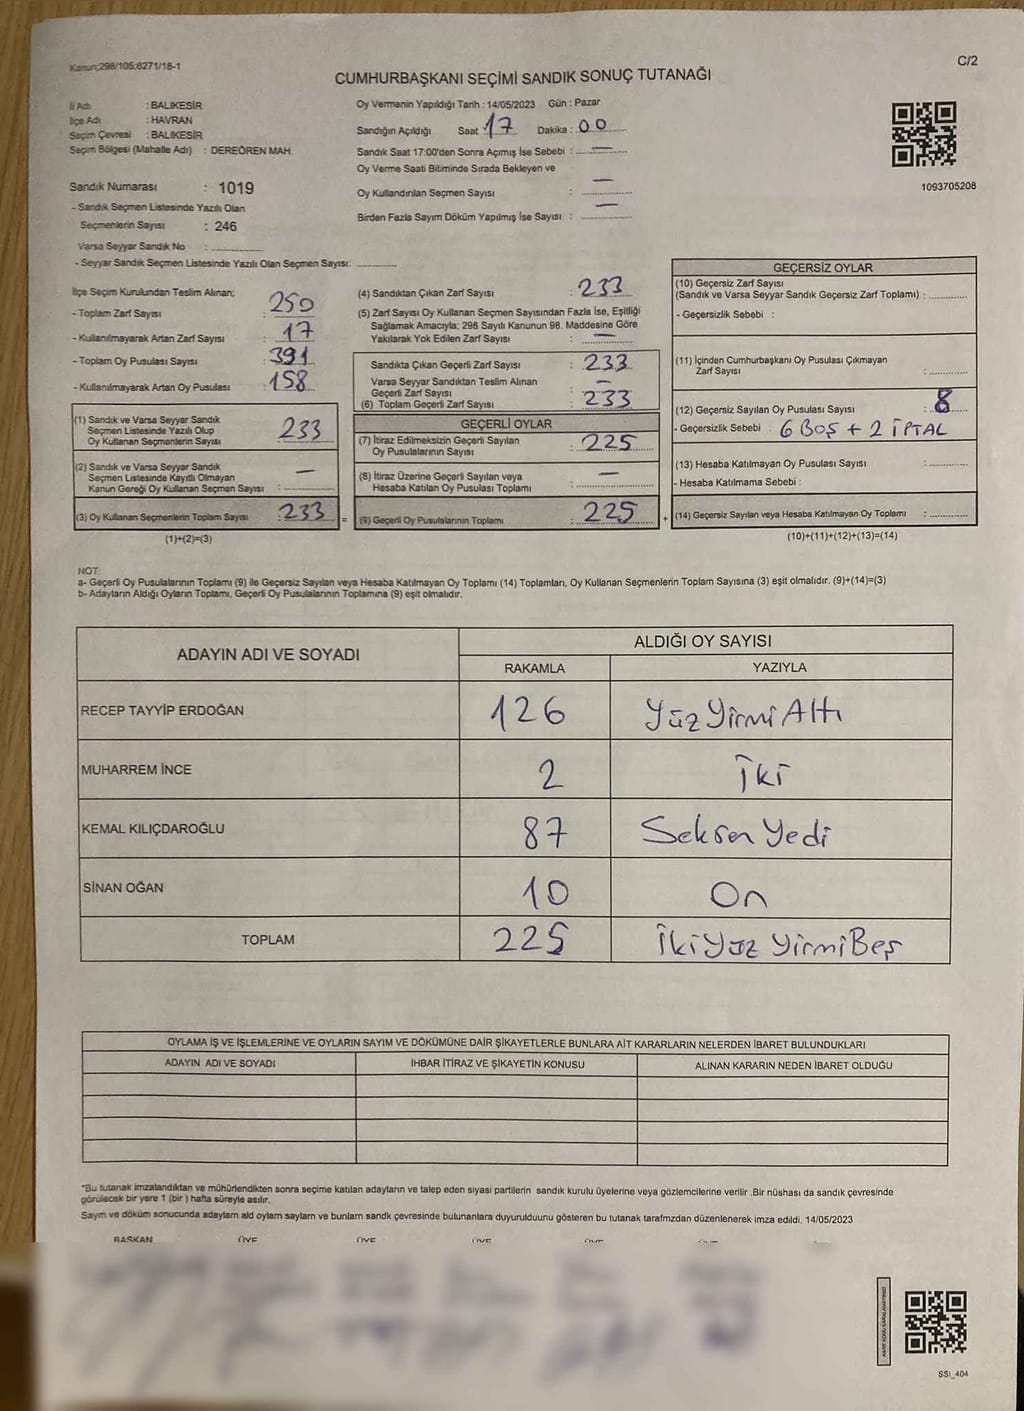 Kanun;298/105;6271/18-1
C/2
CUMHURBAŞKANI SEÇİMİ SANDIK SONUÇ TUTANAĞI
İl Adı : BALIKESİR
İlçe Adı : HAVRAN
Seçim Çevresi : BALIKESİR
Seçim Bölgesi (Mahalle Adı) : DEREÖREN MAH.
Sandık Numarası : 1019
- Sandık Seçmen Listesinde Yazılı Olan
Seçmenlerin Sayısı : 246
Varsa Seyyar Sandık No : ...............
- Seyyar Sandık Seçmen Listesinde Yazılı Olan Seçmen Sayısı: ............
Oy Vermenin Yapıldığı Tarih : 14/05/2023 Gün : Pazar
Sandığın Açıldığı Saat : 17 Dakika : 00
Sandık Saat 17:00'den Sonra Açımış İse Sebebi : —
Oy Verme Saati Bitiminde Sırada Bekleyen ve
Oy Kullandırılan Seçmen Sayısı : —
Birden Fazla Sayım Döküm Yapılmış İse Sayısı : —
1093705208
İlçe Seçim Kurulundan Teslim Alınan;
- Toplam Zarf Sayısı : 250
- Kullanılmayarak Artan Zarf Sayısı : 17
- Toplam Oy Pusulası Sayısı : 391
- Kullanılmayarak Artan Oy Pusulası : 158
(1) Sandık ve Varsa Seyyar Sandık
Seçmen Listesinde Yazılı Olup
Oy Kullanan Seçmenlerin Sayısı : 233
(2) Sandık ve Varsa Seyyar Sandık
Seçmen Listesinde Kayıtlı Olmayan
Kanun Gereği Oy Kullanan Seçmen Sayısı : —
(3) Oy Kullanan Seçmenlerin Toplam Sayısı : 233 =
(1)+(2)=(3)
(4) Sandıktan Çıkan Zarf Sayısı : 233
(5) Zarf Sayısı Oy Kullanan Seçmen Sayısından Fazla İse, Eşitliği
Sağlamak Amacıyla; 298 Sayılı Kanunun 98. Maddesine Göre
Yakılarak Yok Edilen Zarf Sayısı : —
Sandıkta Çıkan Geçerli Zarf Sayısı : 233
Varsa Seyyar Sandıktan Teslim Alınan
Geçerli Zarf Sayısı : —
(6) Toplam Geçerli Zarf Sayısı : 233
GEÇERLİ OYLAR
(7) İtiraz Edilmeksizin Geçerli Sayılan
Oy Pusulalarının Sayısı : 225
(8) İtiraz Üzerine Geçerli Sayılan veya
Hesaba Katılan Oy Pusulası Toplamı : —
(9) Geçerli Oy Pusulalarının Toplamı : 225 +
GEÇERSİZ OYLAR
(10) Geçersiz Zarf Sayısı
(Sandık ve Varsa Seyyar Sandık Geçersiz Zarf Toplamı) : ............
- Geçersizlik Sebebi :
(11) İçinden Cumhurbaşkanı Oy Pusulası Çıkmayan
Zarf Sayısı : ............
(12) Geçersiz Sayılan Oy Pusulası Sayısı : 8
- Geçersizlik Sebebi : 6 BOŞ + 2 İPTAL
(13) Hesaba Katılmayan Oy Pusulası Sayısı : ............
- Hesaba Katılmama Sebebi :
(14) Geçersiz Sayılan veya Hesaba Katılmayan Oy Toplamı : ............
(10)+(11)+(12)+(13)=(14)
NOT:
a- Geçerli Oy Pusulalarının Toplamı (9) ile Geçersiz Sayılan veya Hesaba Katılmayan Oy Toplamı (14) Toplamları, Oy Kullanan Seçmenlerin Toplam Sayısına (3) eşit olmalıdır. (9)+(14)=(3)
b- Adayların Aldığı Oyların Toplamı, Geçerli Oy Pusulalarının Toplamına (9) eşit olmalıdır.
ADAYIN ADI VE SOYADI
ALDIĞI OY SAYISI
RAKAMLA YAZIYLA
RECEP TAYYİP ERDOĞAN 126 Yüz Yirmi Altı
MUHARREM İNCE 2 İki
KEMAL KILIÇDAROĞLU 87 Seksen Yedi
SİNAN OĞAN 10 On
TOPLAM 225 İki Yüz Yirmi Beş
OYLAMA İŞ VE İŞLEMLERİNE VE OYLARIN SAYIM VE DÖKÜMÜNE DAİR ŞİKAYETLERLE BUNLARA AİT KARARLARIN NELERDEN İBARET BULUNDUKLARI
ADAYIN ADI VE SOYADI İHBAR İTİRAZ VE ŞİKAYETİN KONUSU ALINAN KARARIN NEDEN İBARET OLDUĞU
*Bu tutanak imzalandıktan ve mühürlendikten sonra seçime katılan adayların ve talep eden siyasi partilerin sandık kurulu üyelerine veya gözlemcilerine verilir .Bir nüshası da sandık çevresinde
görülecek bir yere 1 (bir ) hafta süreyle asılır.
Sayım ve döküm sonucunda adaylarn ald oylarn saylarn ve bunlarn sandk çevresinde bulunanlara duyurulduunu gösteren bu tutanak tarafmzdan düzenlenerek imza edildi. 14/05/2023
BAŞKAN ÜYE ÜYE ÜYE ÜYE
SSI_404